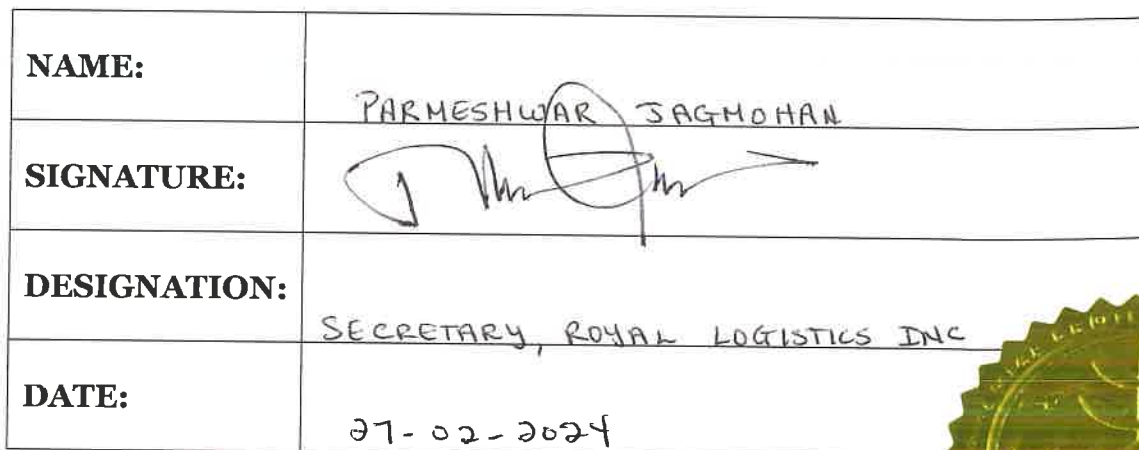 NAME: PARMESHWAR JAGMOHAN
SIGNATURE:
DESIGNATION: SECRETARY, ROYAL LOGISTICS INC
DATE: 27-02-2024